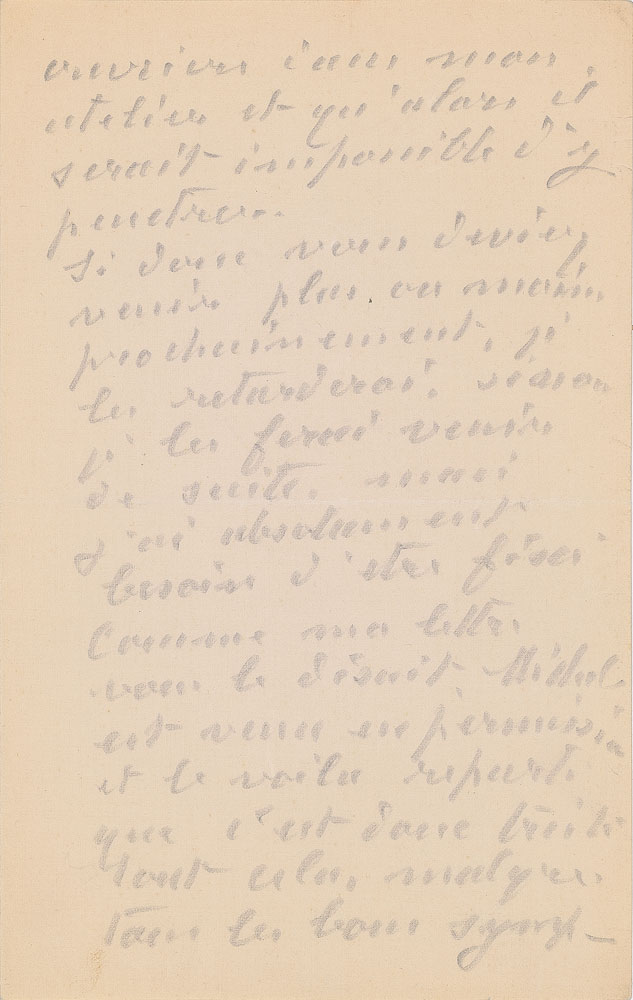 ouvriers dans mon
atelier et qu'alors il
serait impossible d'y
penetrer.
Si donc vous deviez
venir plus ou moins
prochainement, je
les retarderai, sinon
je les ferai venir
de suite. mais
j'ai absolument
besoin d'etre fixé
Comme ma lettre
vous le disait Michel
est venu en permission
et le voila reparti
que c'est donc triste
tout cela, malgre
tous les bons symp-